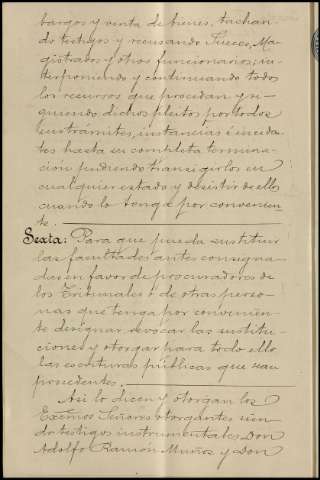 bargos y venta de bienes, tachan-
do testigos y recusando Jueces, Ma-
gistrados y otros funcionarios; in-
terponiendo y continuando todos
los recursos que procedan y si-
guiendo dichos pleitos por todos
sus trámites, instancias é inciden-
tes hasta su completa termina-
ción pudiendo transigirlos en
cualquier estado y desistir de ellos
cuando lo tenga por convenien-
te.
Sexta: Para que pueda sustituir
las facultades antes consigna-
das en favor de procuradores de
los Tribunales ó de otras perso-
nas que tenga por convenien-
te designar, revocar las sustitu-
ciones y otorgar para todo ello
las escrituras públicas que sean
procedentes.
Así lo dicen y otorgan los
Excmos Señores otorgantes sien-
do testigos instrumentales Don
Adolfo Ramón Muñoz y Don